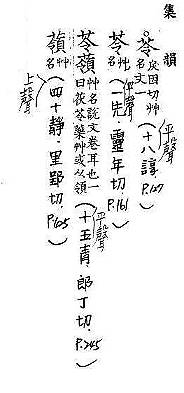 集韻
苓 艸名文 因切 平聲 (十八諄. P.127)
苓 艸名 平聲 (一先.靈年切. P.161)
苓 艸名說文卷耳也一曰茯苓藥艸或从領 平聲 (十五青.郎丁切. P.245)
艸名 上聲 (四十靜.里郢切.